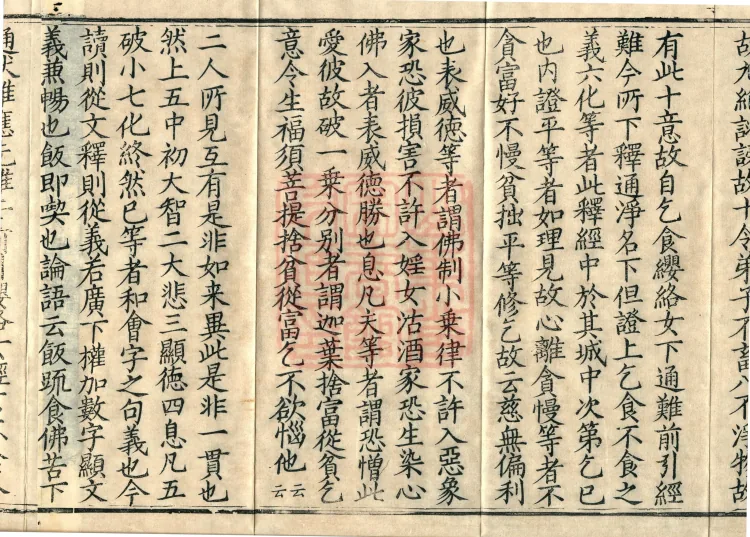 有此十意故自乞食纓絡女下通難前引經
難今所下釋通淨名下但證上乞食不食之
義六化等者此釋經中於其城中次第乞已
也內證平等者如理見故心離貪慢等者不
貪富好不慢貧拙平等修乞故云慈無偏利
也表威德等者謂佛制小乗律不許入惡象
家恐彼損害不許入婬女沽酒家恐生染心
佛入者表威德勝也息凡夫等者謂恐憎此
愛彼故破一乗分別者謂迦葉捨富從貧乞
意今生福須菩提捨貧從富乞不欲惱他云云
二人所見互有是非如来異此是非一貫也
然上五中初大智二大悲三顯德四息凡五
破小七化終然巳等者和會字之句義也今
讀則從文釋則從義若廣下權加數字顯文
義兼暢也飯即喫也論語云飯䟽食佛苦下